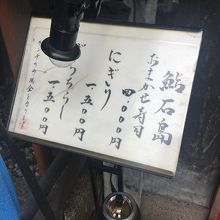 鮨石島
おまかせ寿司
四、〇〇〇円
にぎり
一、五〇〇円
ばらちらし
一、五〇〇円